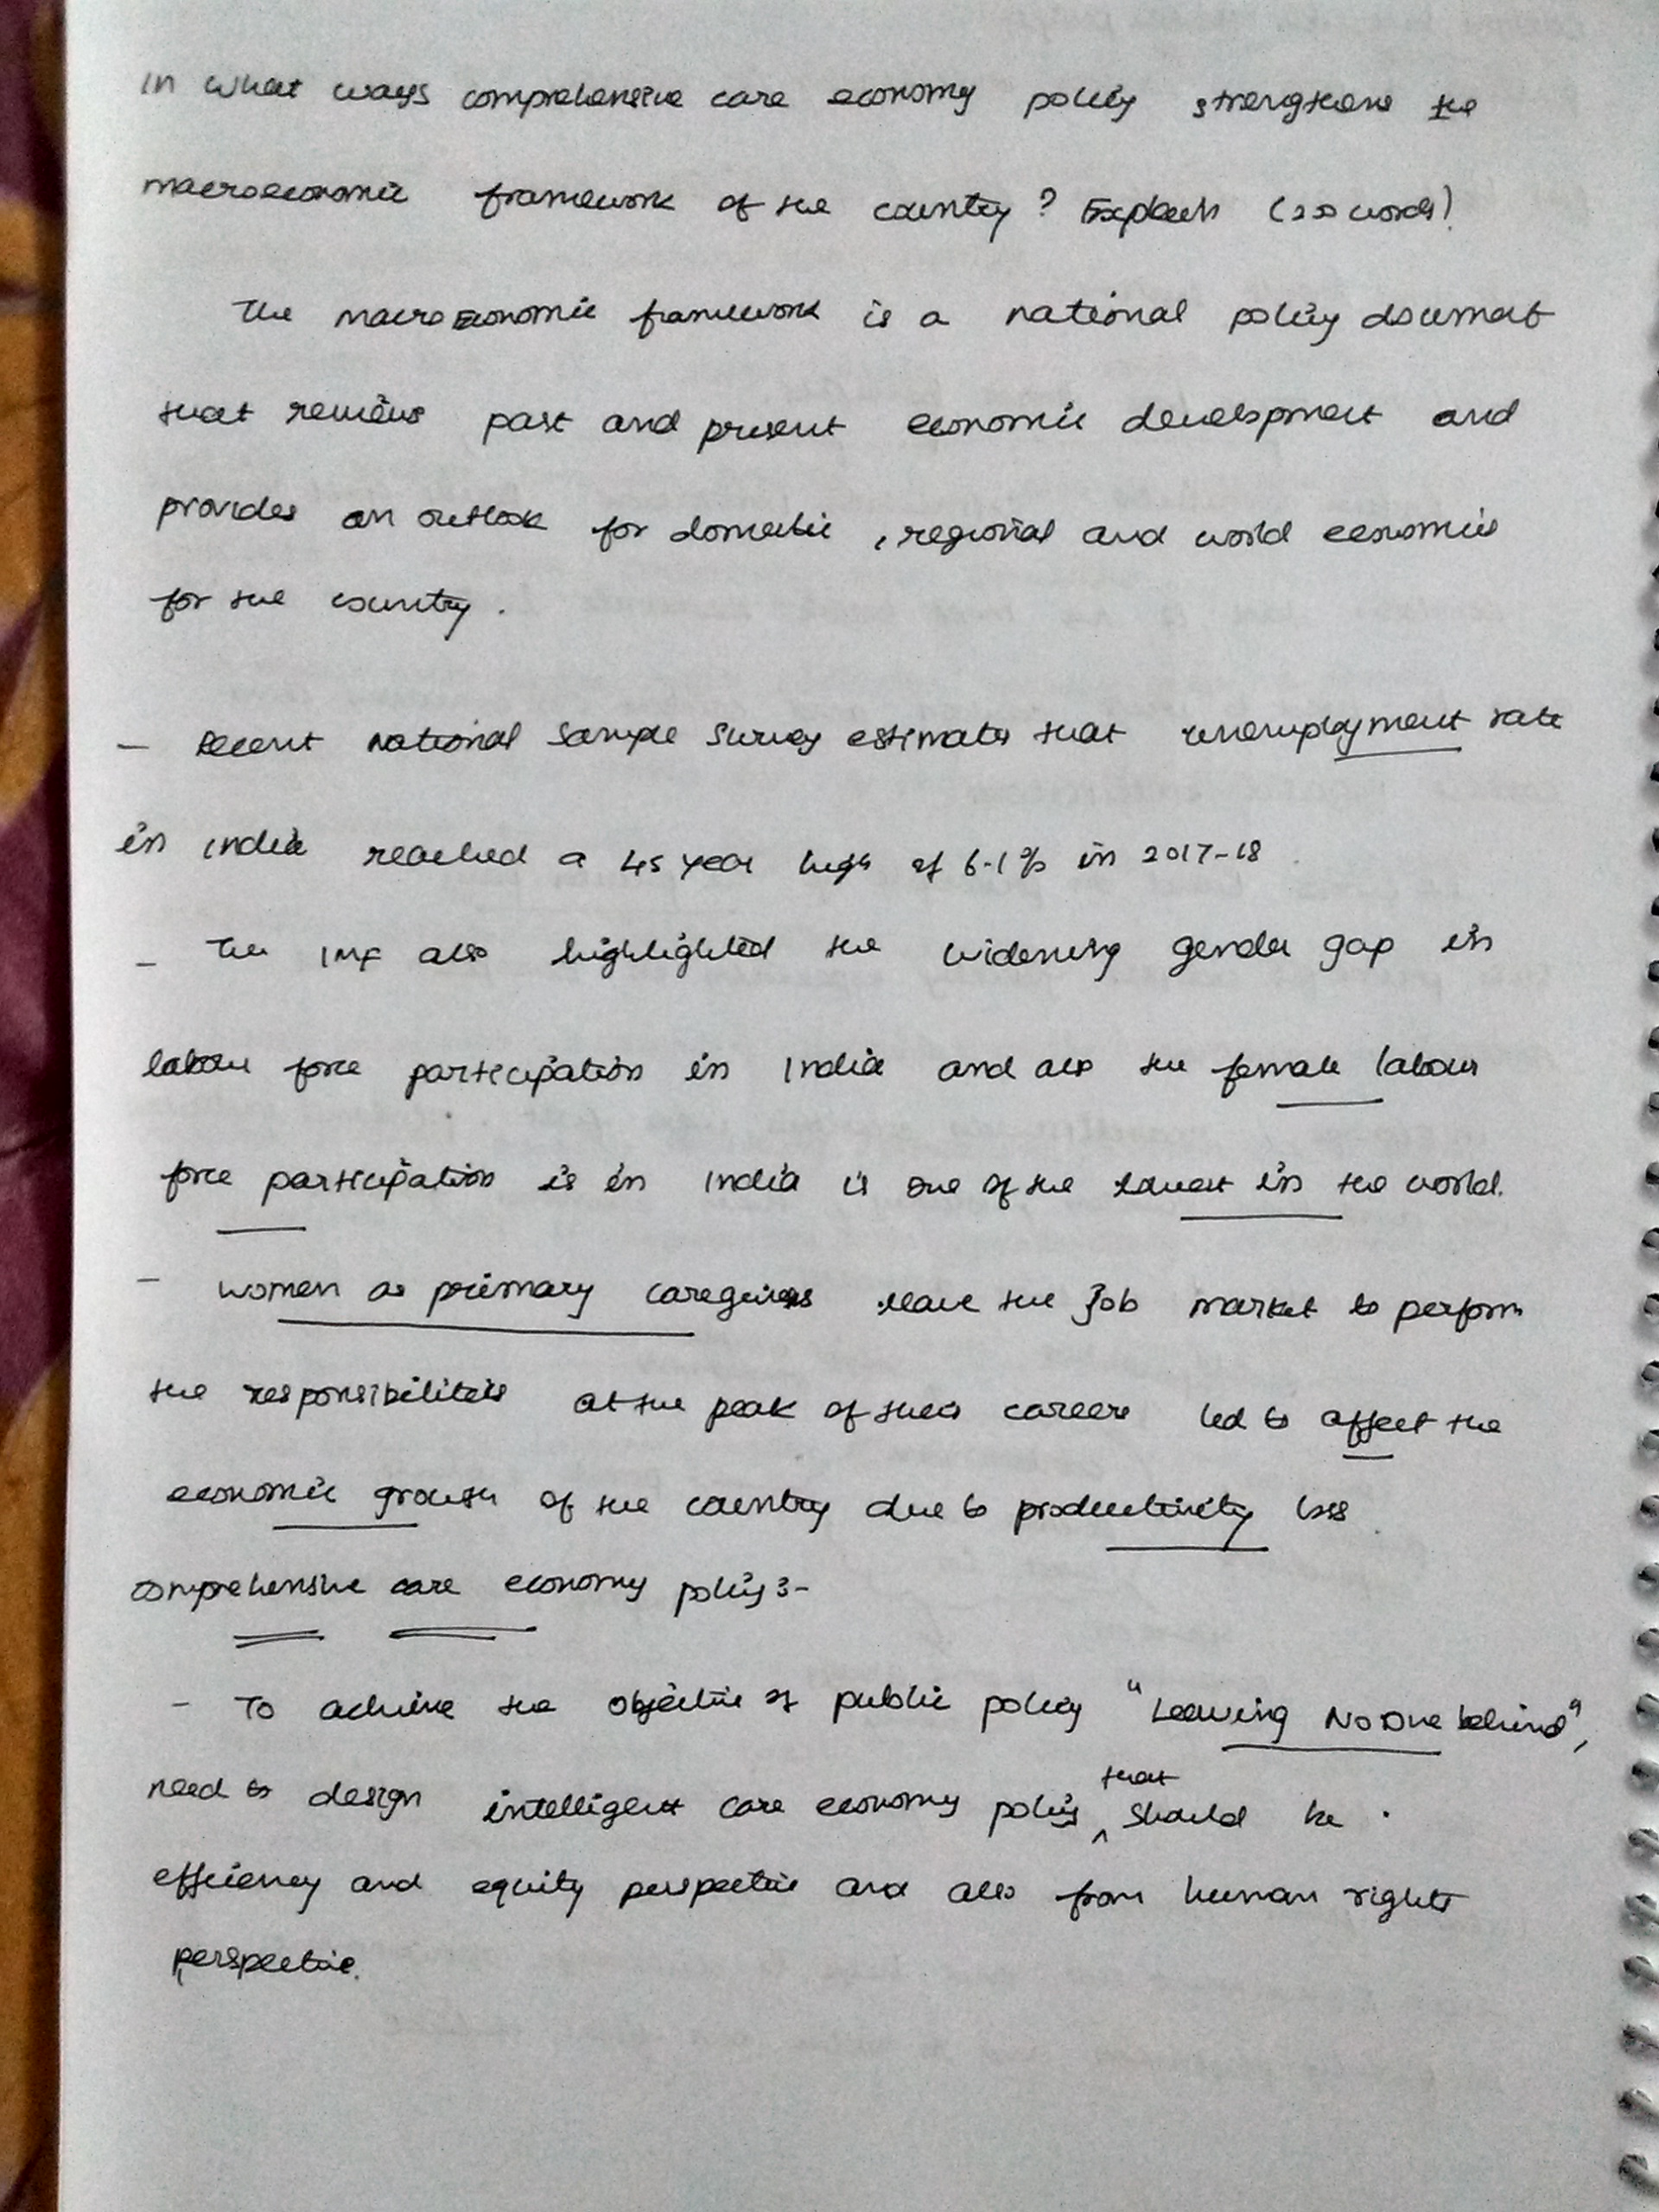 In what ways comprehensive care economy policy strengthens the
macroeconomic framework of the country? Explain (250 words)
The macro economic framework is a national policy document
that reviews past and present economic development and
provides an outlook for domestic, regional and world economies
for the country.
- Recent National Sample Survey estimates that unemployment rate
in India reached a 45 year high of 6.1% in 2017-18
- The IMF also highlighted the widening gender gap in
labour force participation in India and also the female labour
force participation is in India is one of the lowest in the world.
- women as primary caregivers leave the job market to perform
the responsibilities at the peak of their careers led to affect the
economic growth of the country due to productivity loss
comprehensive care economy policy:-
- To achieve the objective of public policy "Leaving No One behind",
need to design intelligent care economy policy that should be
efficiency and equity perspective and also from human rights
perspective.